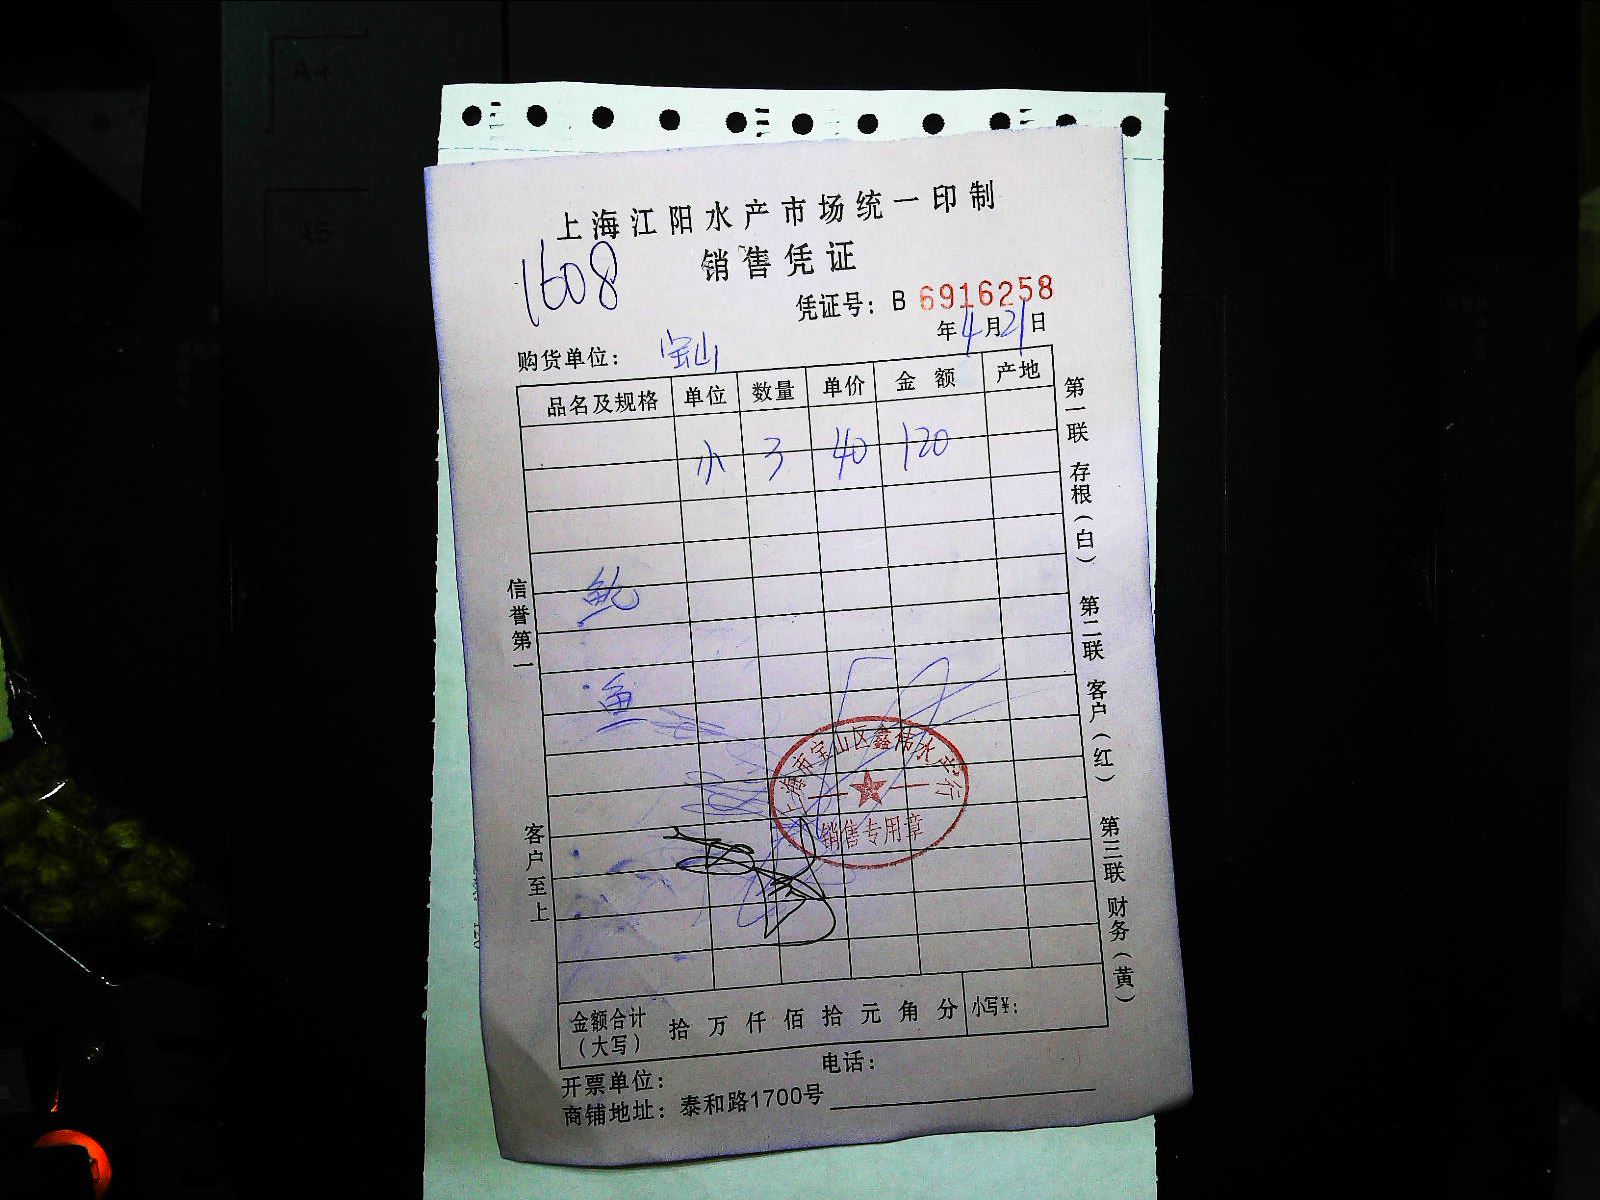 上海江阳水产市场统一印制
销售凭证
1608
凭证号：B 6916258
年4月21日
购货单位：宝山
品名及规格 单位 数量 单价 金额 产地
3 40 120
鱼
信誉第一
客户至上
第一联 存根（白） 第二联 客户（红） 第三联 财务（黄）
上海市宝山区鑫伟水产行
销售专用章
金额合计（大写） 拾 万 仟 佰 拾 元 角 分 小写¥：
开票单位： 电话：
商铺地址：泰和路1700号